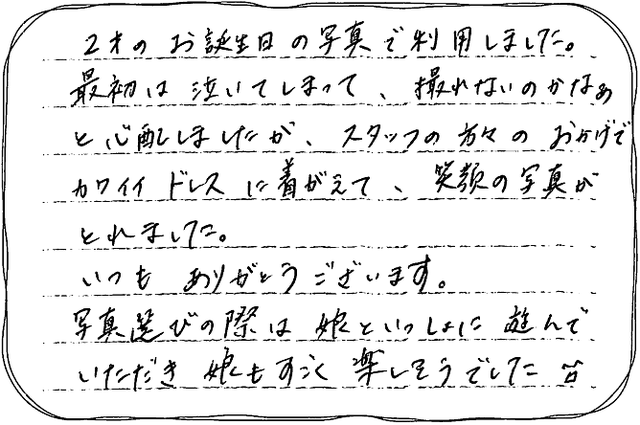 2才の お誕生日の写真で利用しました。
最初は 泣いてしまって、撮れないのかなぁ
と心配しましたが、スタッフの方々の おかげで
カワイイ ドレスに着がえて、笑顔の写真が
とれました。
いつも ありがとうございます。
写真選びの際は 娘といっしょに 遊んで
いただき 娘もすごく 楽しそうでした ^^